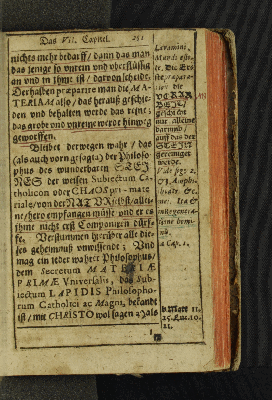 Das VII. Capitel. 251
nichts mehr bedarff/ dann das man
das jenige so unrein und uberflüssig
an und in ihme ist/ darvon scheide.
Derhalben præparire man die MA-
TERIAM also/ das herauß geschie-
den und behalten werde das reine;
das grobe und unreine werde hinweg
geworffen.
Bleibet derwegen wahr/ das
(als auch vorn gesagt) der Philoso-
phus des wunderbaren STEI-
NES der weisen Subiectum Ca-
tholicon oder CHAOS pri-mate
riale/ von der NATUR
ne/ hero empfangen müsse und er es
ihme nicht erst Componiren dürf-
fe. Verstummen hierüber alle die-
ses geheimnuß unwissende; Und
mag ein jeder wahrer Philosophus/
dem Secretum MATERIÆ
PRIMÆ Vniversalis, das Sub-
iectum LAPIDIS Philosopho-
rum Catholici ac Magni, bekandt
ist/ mit CHRISTO wol sagen: Als
geschicht
nur alleine
darumb/
auff das der
STEIN
gereiniget
werde.
a Cap. 1.
b Matt 11.
25. Luc. 10.
21.